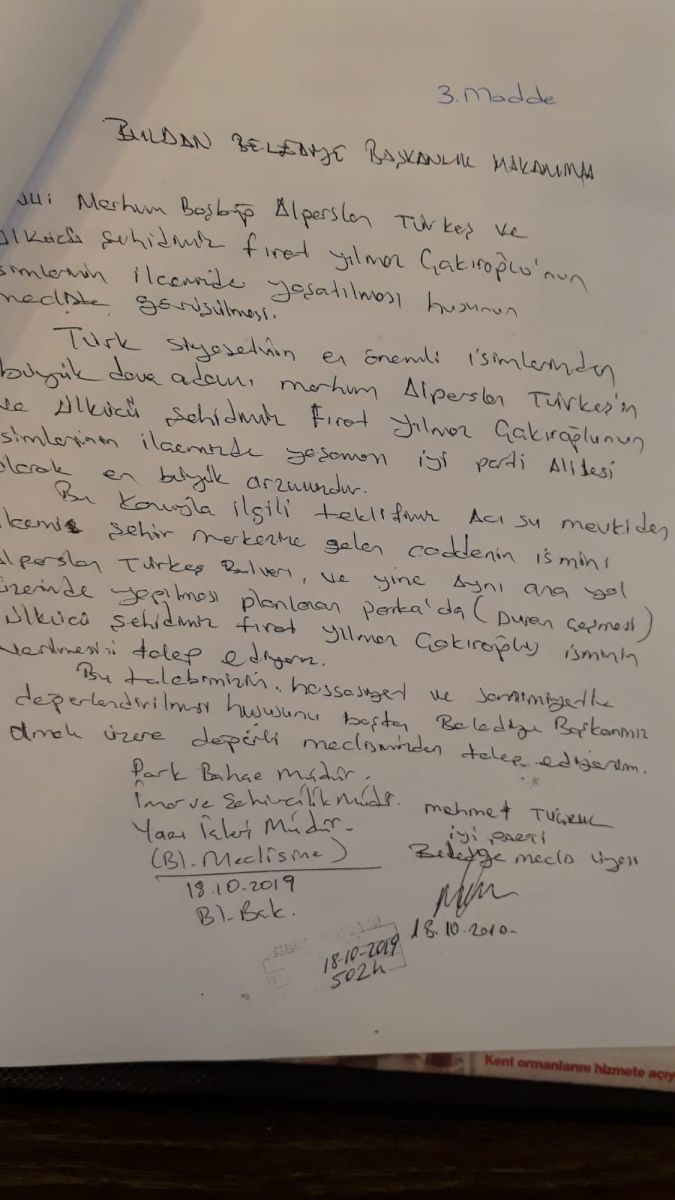 3. Madde
BULDAN BELEDİYE BAŞKANLIK MAKAMINA
Merhum Başbuğ Alperslan Türkeş ve
ülkücü şehidimiz fırat yılmaz Çakıroğlu'nun
isimlerinin ilçemizde yaşatılması hususunun
mecliste görüşülmesi.
Türk siyasetinin en önemli isimlerinden
büyük dava adamı merhum Alperslan Türkeş'in
ve ülkücü şehidimiz fırat yılmaz Çakıroğlunun
isimlerinin ilçemizde yaşaması iyi parti Ailesi
olarak en büyük arzumuzdur.
Bu konuyla ilgili teklifimiz Acı su mevkiden
şehir merkezine gelen caddenin ismini
Alperslan Türkeş Bulvarı, ve yine Aynı ana yol
üzerinde yapılması planlanan parka'da (Duran Çeşmesi)
ülkücü şehidimiz fırat yılmaz Çakıroğlu isminin
verilmesini talep ediyoruz.
Bu talebimizin hassasiyet ve samimiyetle
değerlendirilmesi hususunu başta Belediye Başkanımız
olmak üzere değerli meclisimizden talep ediyorum.
Park Bahçe Müdür.
İmar ve Şehircilik Müdr.
Yazı İşleri Müdür.
(Bl. Meclisine)
18.10.2019
Bl. Bşk.
mehmet TUĞRUL
iyi PARTİ
Belediye meclis üyesi
18.10.2010-
18-10-2019
5024
Kent ormanlarını hizmete açıy